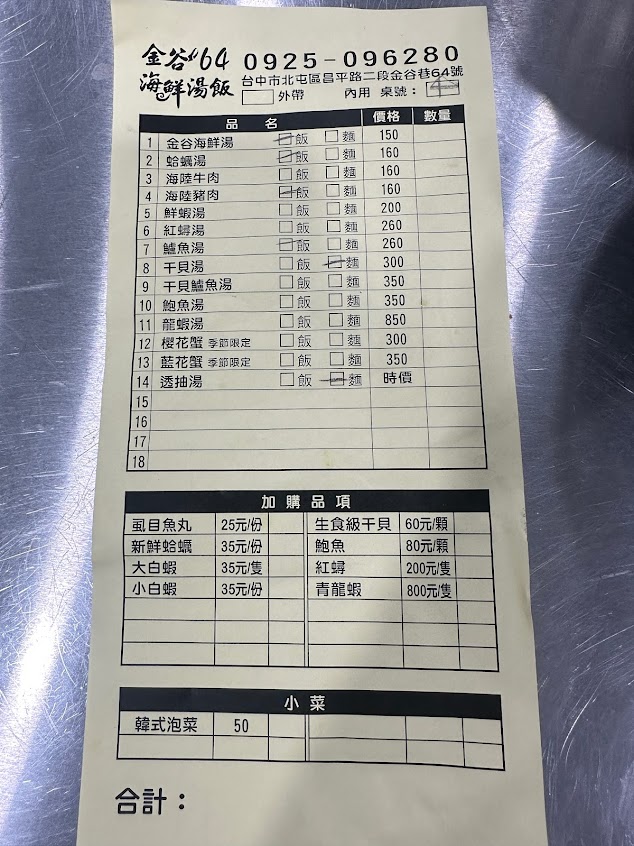 金谷#64 0925-096280
海鮮湯飯 台中市北屯區昌平路二段金谷巷64號
外帶 內用 桌號：
品名 價格 數量
1 金谷海鮮湯 飯 麵 150
2 蛤蠣湯 飯 麵 160
3 海陸牛肉 飯 麵 160
4 海陸豬肉 飯 麵 160
5 鮮蝦湯 飯 麵 200
6 紅蟳湯 飯 麵 260
7 鱸魚湯 飯 麵 260
8 干貝湯 飯 麵 300
9 干貝鱸魚湯 飯 麵 350
10 鮑魚湯 飯 麵 350
11 龍蝦湯 飯 麵 850
12 櫻花蟹 季節限定 飯 麵 300
13 藍花蟹 季節限定 飯 麵 350
14 透抽湯 飯 麵 時價
15
16
17
18
加購品項
虱目魚丸 25元/份 生食級干貝 60元/顆
新鮮蛤蠣 35元/份 鮑魚 80元/顆
大白蝦 35元/隻 紅蟳 200元/隻
小白蝦 35元/份 青龍蝦 800元/隻
小菜
韓式泡菜 50
合計：